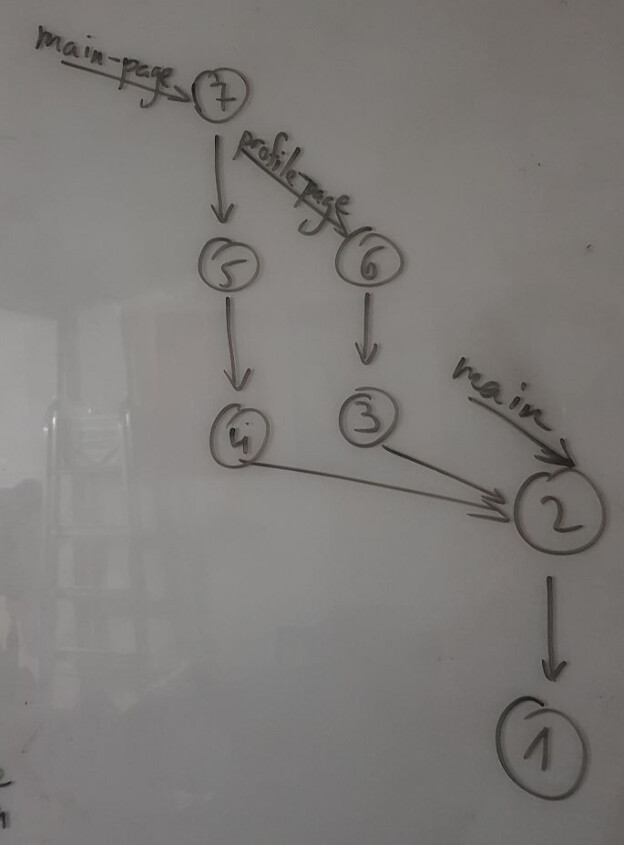 main-page
7
profile-page
5
6
main
4
3
2
1